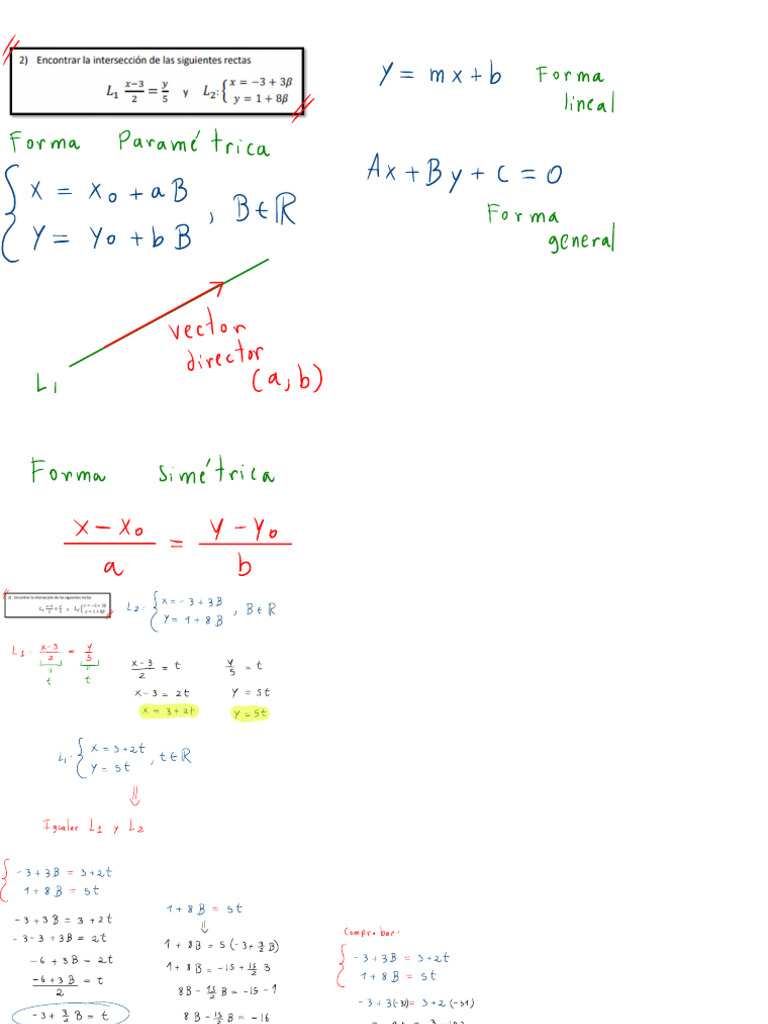 2) Encontrar la intersección de las siguientes rectas
L₁ (x−3)/2 = y/5 y L₂: { x = −3 + 3β
y = 1 + 8β
y = mx + b Forma lineal
Forma Paramétrica
{ x = x₀ + aB
y = y₀ + bB , B ∈ ℝ
Ax + By + C = 0
Forma general
vector
director
(a, b)
L₁
Forma Simétrica
(x − x₀)/a = (y − y₀)/b
2) Encontrar la intersección de las siguientes rectas
L₁ (x−3)/2 = y/5 y L₂: { x = −3 + 3β
y = 1 + 8β
L₂: { x = −3 + 3B
y = 1 + 8B , B ∈ ℝ
L₁: (x−3)/2 = y/5
t t
(x−3)/2 = t y/5 = t
x − 3 = 2t y = 5t
x = 3 + 2t y = 5t
L₁: { x = 3 + 2t
y = 5t , t ∈ ℝ
⇓
Igualar L₁ y L₂
{ −3 + 3B = 3 + 2t
1 + 8B = 5t
−3 + 3B = 3 + 2t
−3 − 3 + 3B = 2t
−6 + 3B = 2t
(−6 + 3B)/2 = t
−3 + 3/2 B = t
1 + 8B = 5t
⇓
1 + 8B = 5(−3 + 3/2 B)
1 + 8B = −15 + 15/2 B
8B − 15/2 B = −15 − 1
8B − 15/2 B = −16
Comprobar:
{ −3 + 3B = 3 + 2t
1 + 8B = 5t